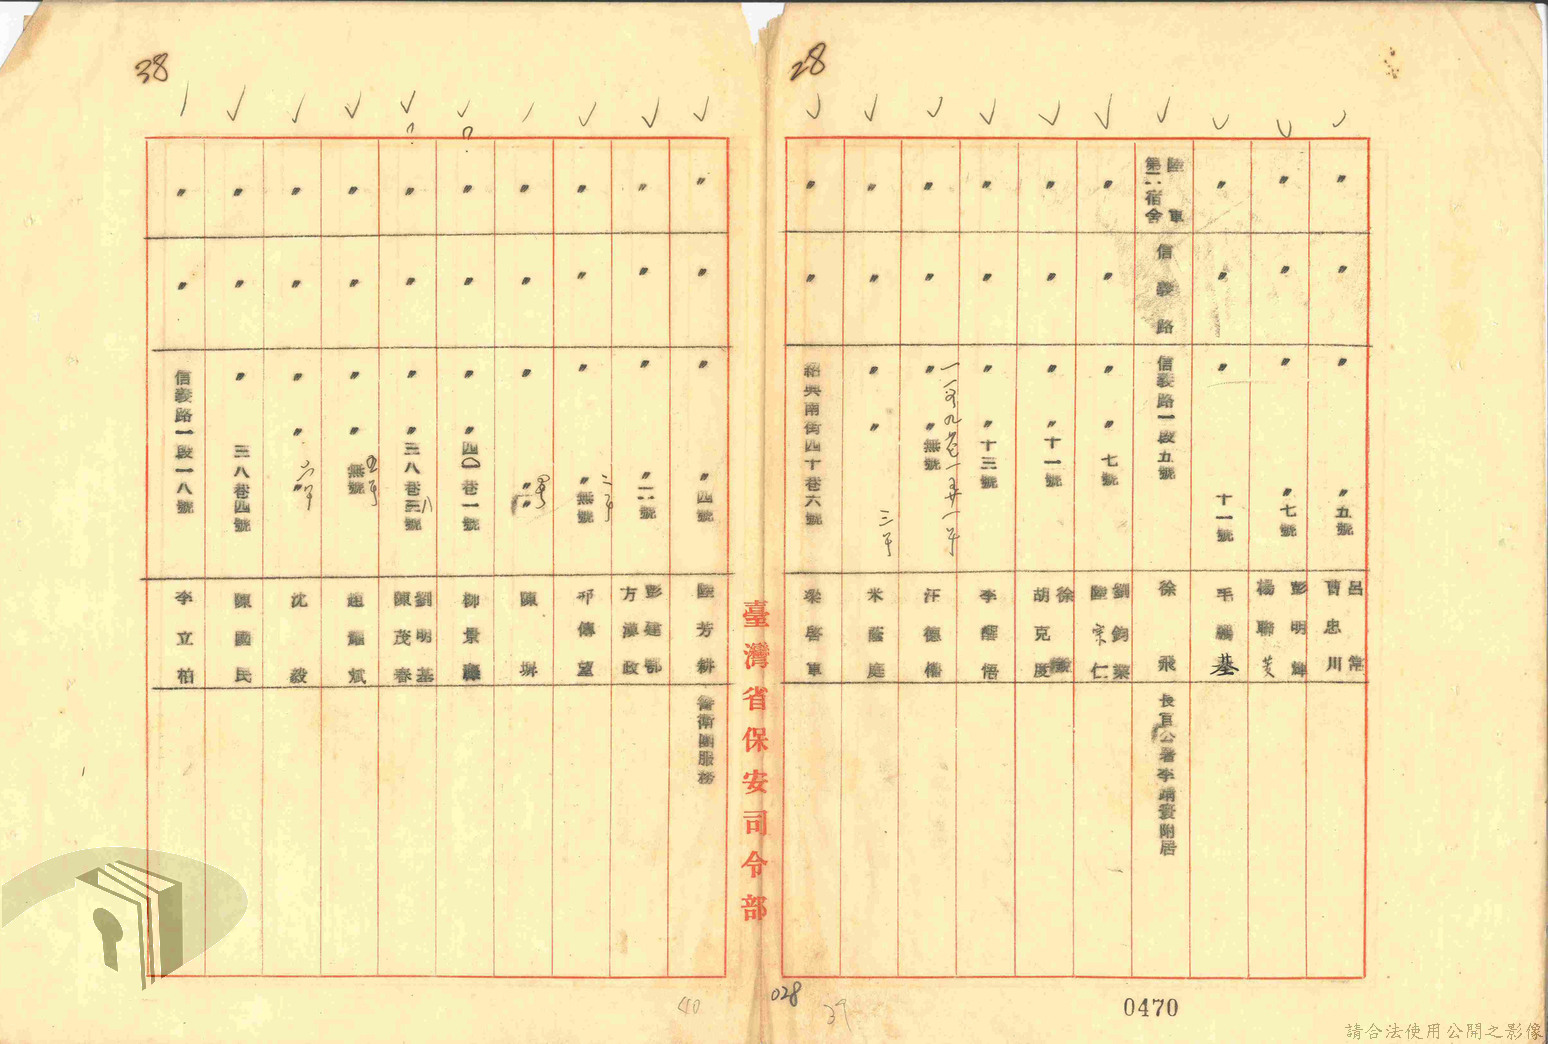 28
〃 〃 〃 〃五號 呂常 曹忠川
〃 〃 〃 〃七號 彭明輝 楊聯芝
〃 〃 〃 十一號 毛鵬基
陸軍第二宿舍 信義路 信義路一段五號 徐飛 長官公署李靖寰附居
〃 〃 〃 七號 劉鈞業 陸宗仁
〃 〃 〃 〃十一號 徐 胡克度
〃 〃 〃 〃十三號 李醒悟
〃 〃 〃 〃無號 汪德
〃 〃 〃 〃 米蔭庭
〃 〃 紹興南街四十巷六號 梁啓軍
臺灣省保安司令部
38
〃 〃 〃 〃四號 陸芳耕 警衛團服務
〃 〃 〃 〃二號 彭建鄂 方漢政
〃 〃 〃 〃無號 邓傳望
〃 〃 〃 〃 〃 陳
〃 〃 〃 〃四〇巷一號 柳景
〃 〃 〃 〃三八巷 號 劉明基 陳茂春
〃 〃 〃 〃無號 趙 斌
〃 〃 〃 〃 〃 沈毅
〃 〃 〃 三八巷四號 陳國民
〃 〃 信義路一段一八號 李立柏
40
028
39
0470
請合法使用公開之影像